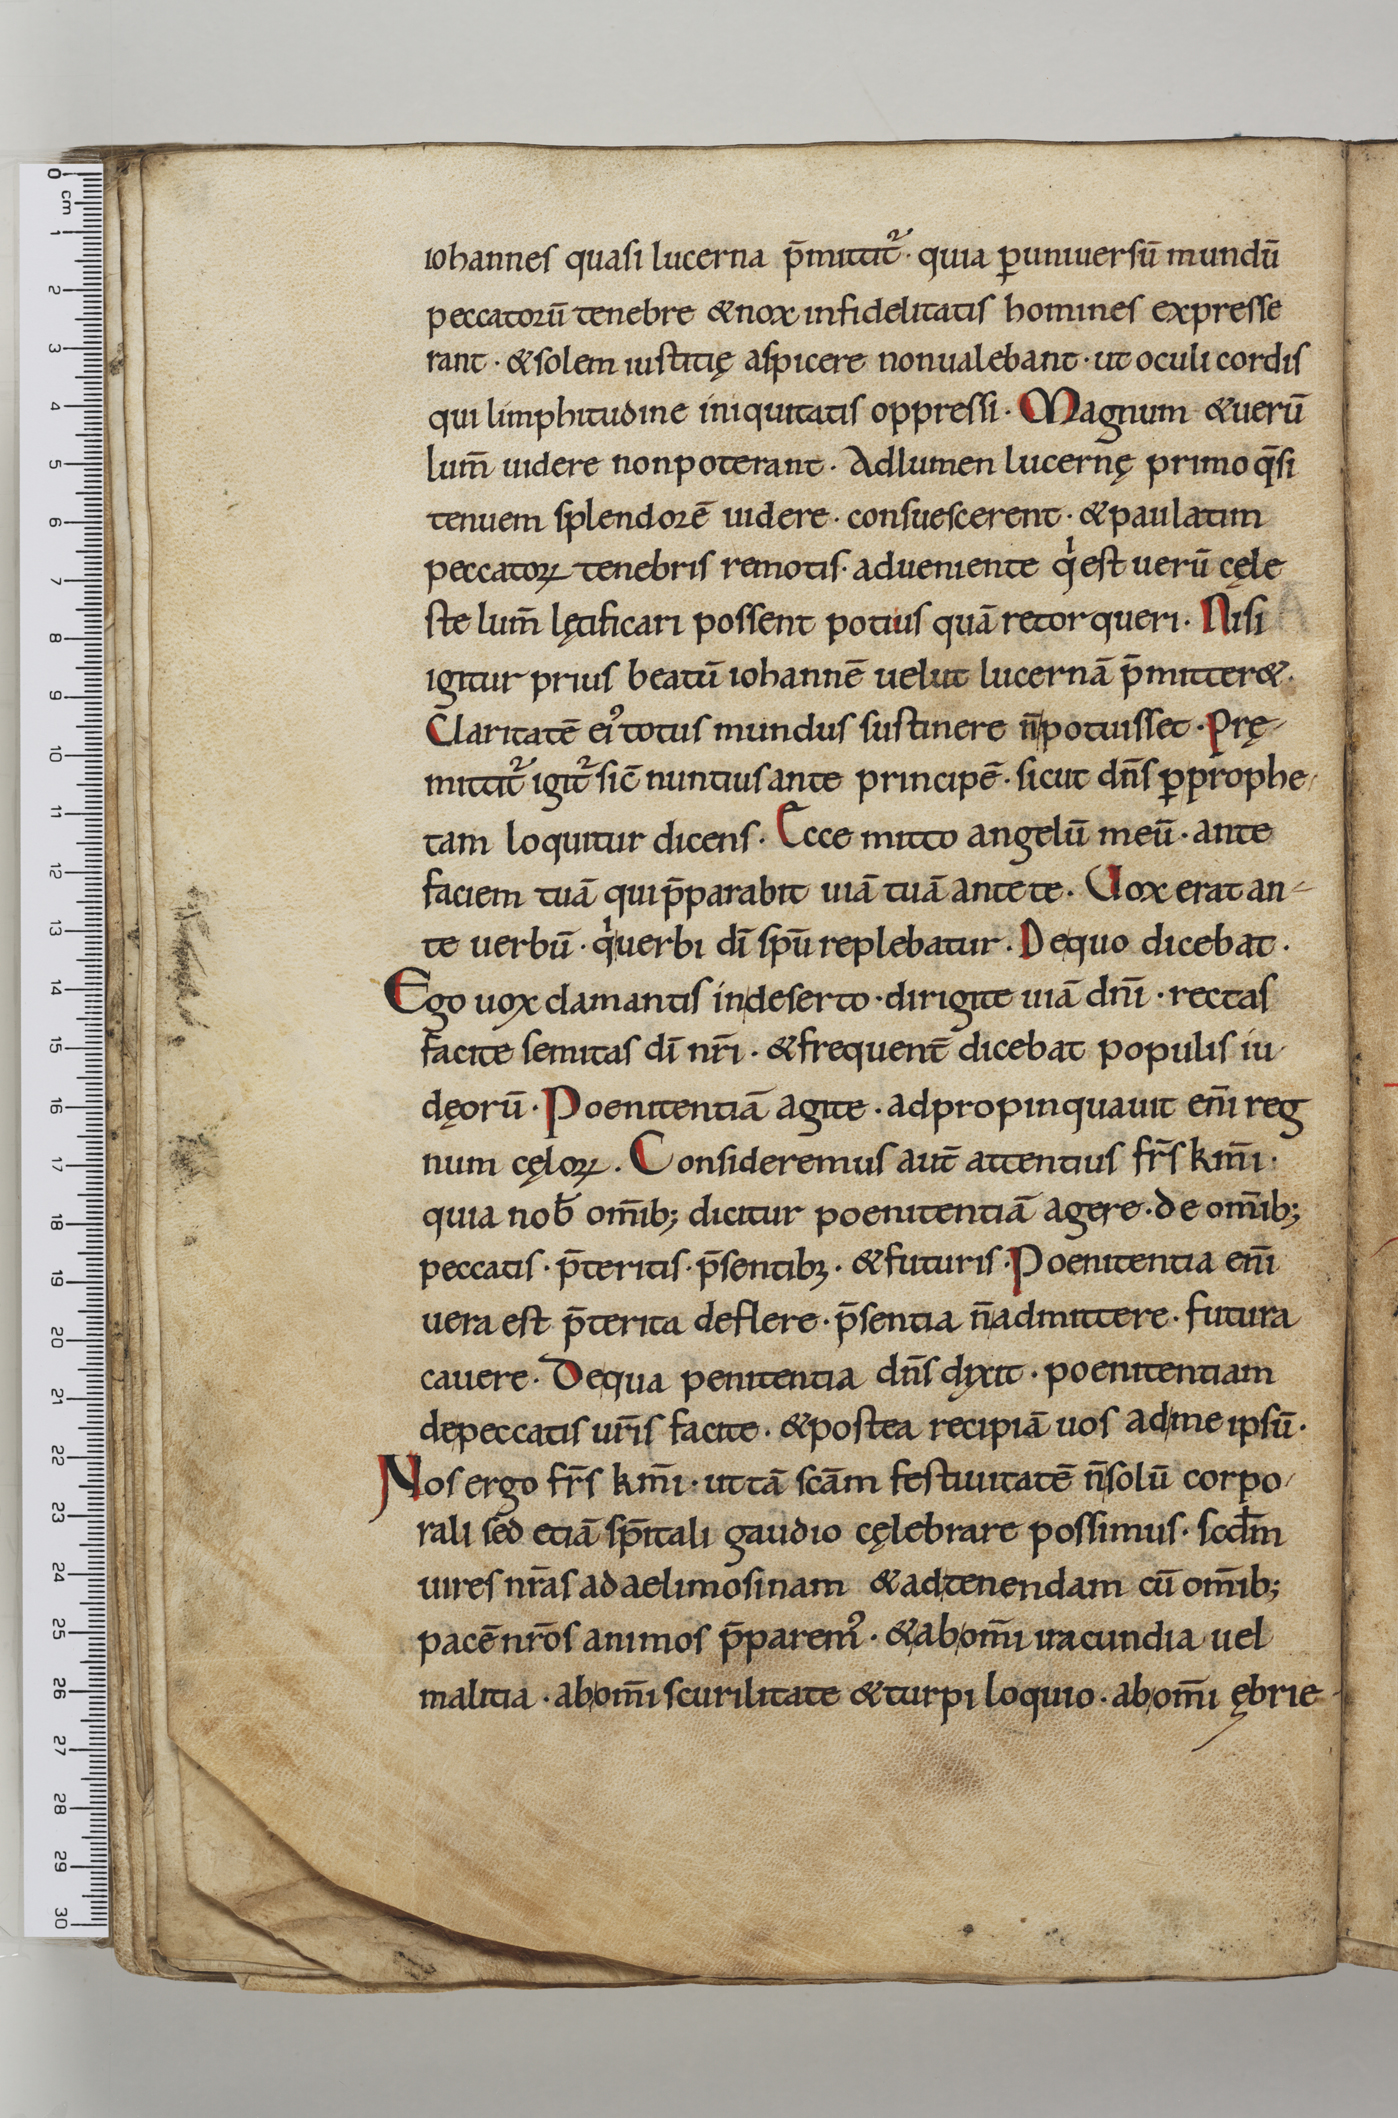 iohannes quasi lucerna p̄mittit᷑· quia ꝑ uniuersū mundū
peccatorū tenebre & nox infidelitatis homines expresse
rant · & solem iustitię aspicere non ualebant · ut oculi cordis
qui limphitudine iniquitatis oppressi · Magnum & uerū
lum̄ uidere non poterant · Ad lumen lucernę primo q̄si
tenuem splendorē uidere · consuescerent · & paulatim
peccatoꝝ tenebris remotis · adueniente qͥ est uerū cęle
ste lum̄ lętificari possent potius quā retorqueri · Nisi
igitur prius beatū iohannē uelut lucernā p̄mitter& ·
Claritatē ei᾽ totus mundus sustinere n̄ potuisset · Prę-
mittit᷑ igit᷑ sic̄ nuntius ante principē · sicut dn̄s ꝑ prophe-
tam loquitur dicens · Ecce mitto angelū meū · ante
faciem tuā qui p̄parabit uiā tuā ante te · Uox erat an-
te uerbū · qͥ uerbi dī sp̄u replebatur · De quo dicebat ·
Ego uox clamantis in deserto · dirigite uiā dn̄i · rectas
facite semitas dī nr̄i · & frequent̄ dicebat populis iu-
dęorū · Poenitentiā agite · adpropinquauit eni̅ reg
num cęloꝝ · Consideremus aut̄ attentius fr̄s km̄i ·
quia nob̄ om̄ib; dicitur poenitentiā agere · de om̄ib;
peccatis · p̄teritis · p̄sentibꝫ · & futuris · Poenitentia eni̅
uera est p̄terita deflere · p̄sentia n̄ admittere · futura
cauere · De qua penitentia dn̄s dixit · poenitentiam
de peccatis ur̄is facite · & postea recipiā uos ad me ipsū ·
Nos ergo fr̄s km̄i · ut tā scām festiuitatē n̄ solū corpo-
rali sed etiā sp̄itali gaudio cęlebrare possimus · scdm̄
uires nr̄as ad aelimosinam & ad tenendam cū om̄ib;
pacē nr̄os animos p̄parem᾽ · & ab om̄i iracundia uel
malitia · ab om̄i scurilitate & turpi loquio · ab om̄i ębrie-